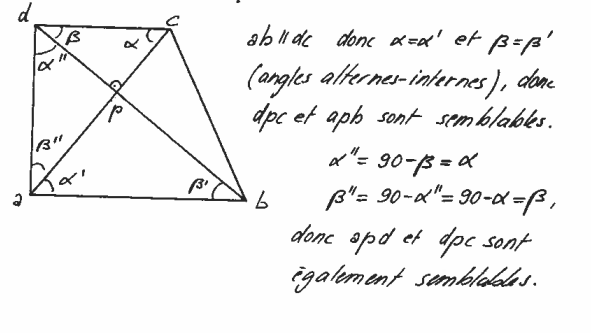 d
c
β
α
α''
p
β''
α'
β'
a
b
ab∥dc donc α=α' et β=β'
(angles alternes-internes), donc
dpc et apb sont semblables.
α''= 90-β=α
β''= 90-α''=90-α=β,
donc apd et dpc sont
également semblables.